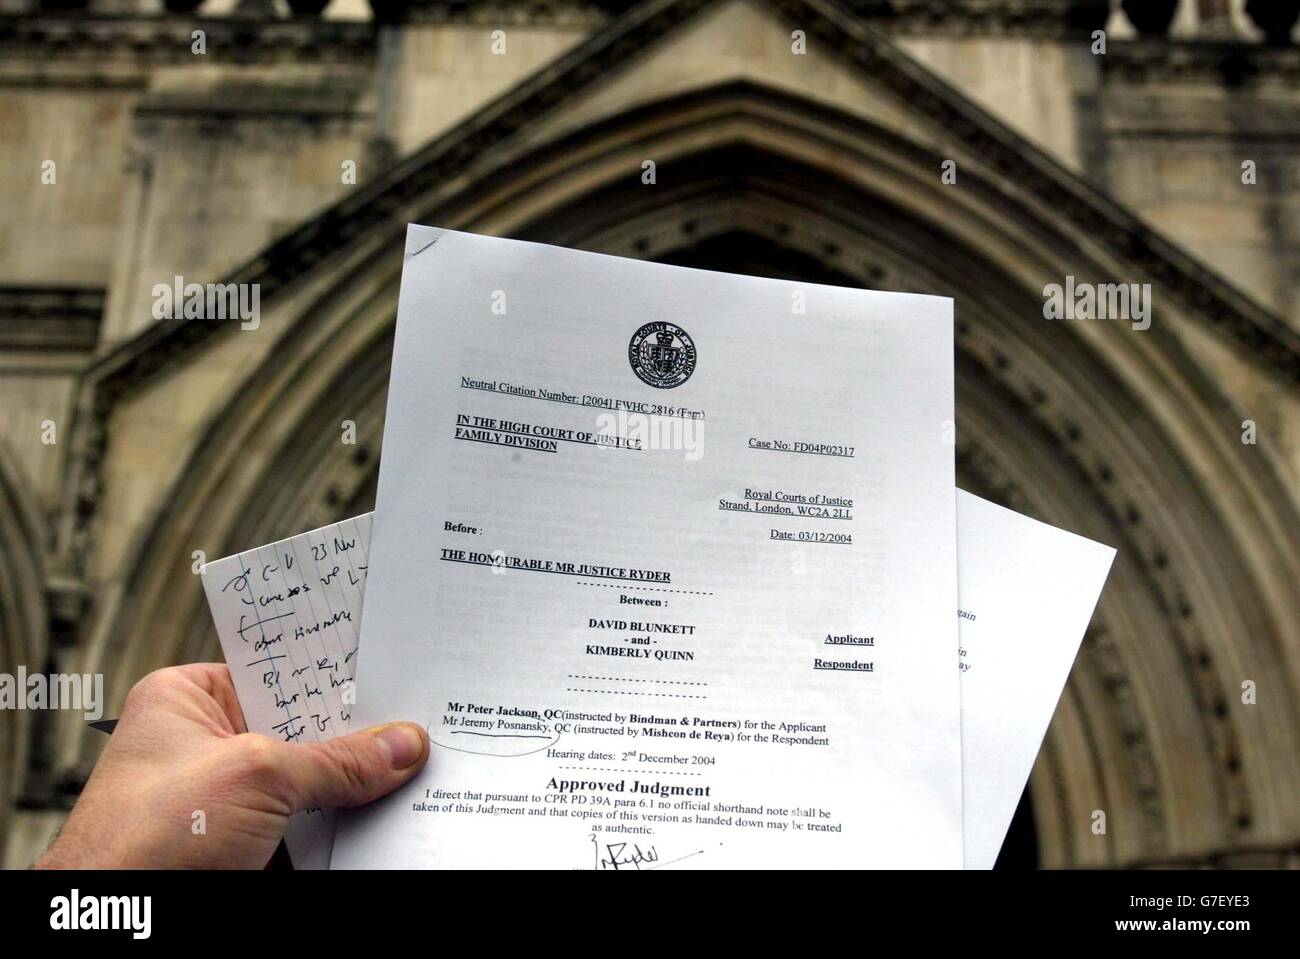 ROYAL COURTS OF JUSTICE
Neutral Citation Number: [2004] EWHC 2816 (Fam)
IN THE HIGH COURT OF JUSTICE
FAMILY DIVISION
Case No: FD04P02317
Royal Courts of Justice
Strand, London, WC2A 2LL
Date: 03/12/2004
Before :
THE HONOURABLE MR JUSTICE RYDER
Between :
DAVID BLUNKETT
Applicant
- and -
KIMBERLY QUINN
Respondent
Mr Peter Jackson, QC(instructed by Bindman & Partners) for the Applicant
Mr Jeremy Posnansky, QC (instructed by Mishcon de Reya) for the Respondent
Hearing dates: 2nd December 2004
Approved Judgment
I direct that pursuant to CPR PD 39A para 6.1 no official shorthand note shall be
taken of this Judgment and that copies of this version as handed down may be treated
as authentic.
Ryder
23 Nov
gain
in
ay
alamy
Image ID: G7EYE3
www.alamy.com